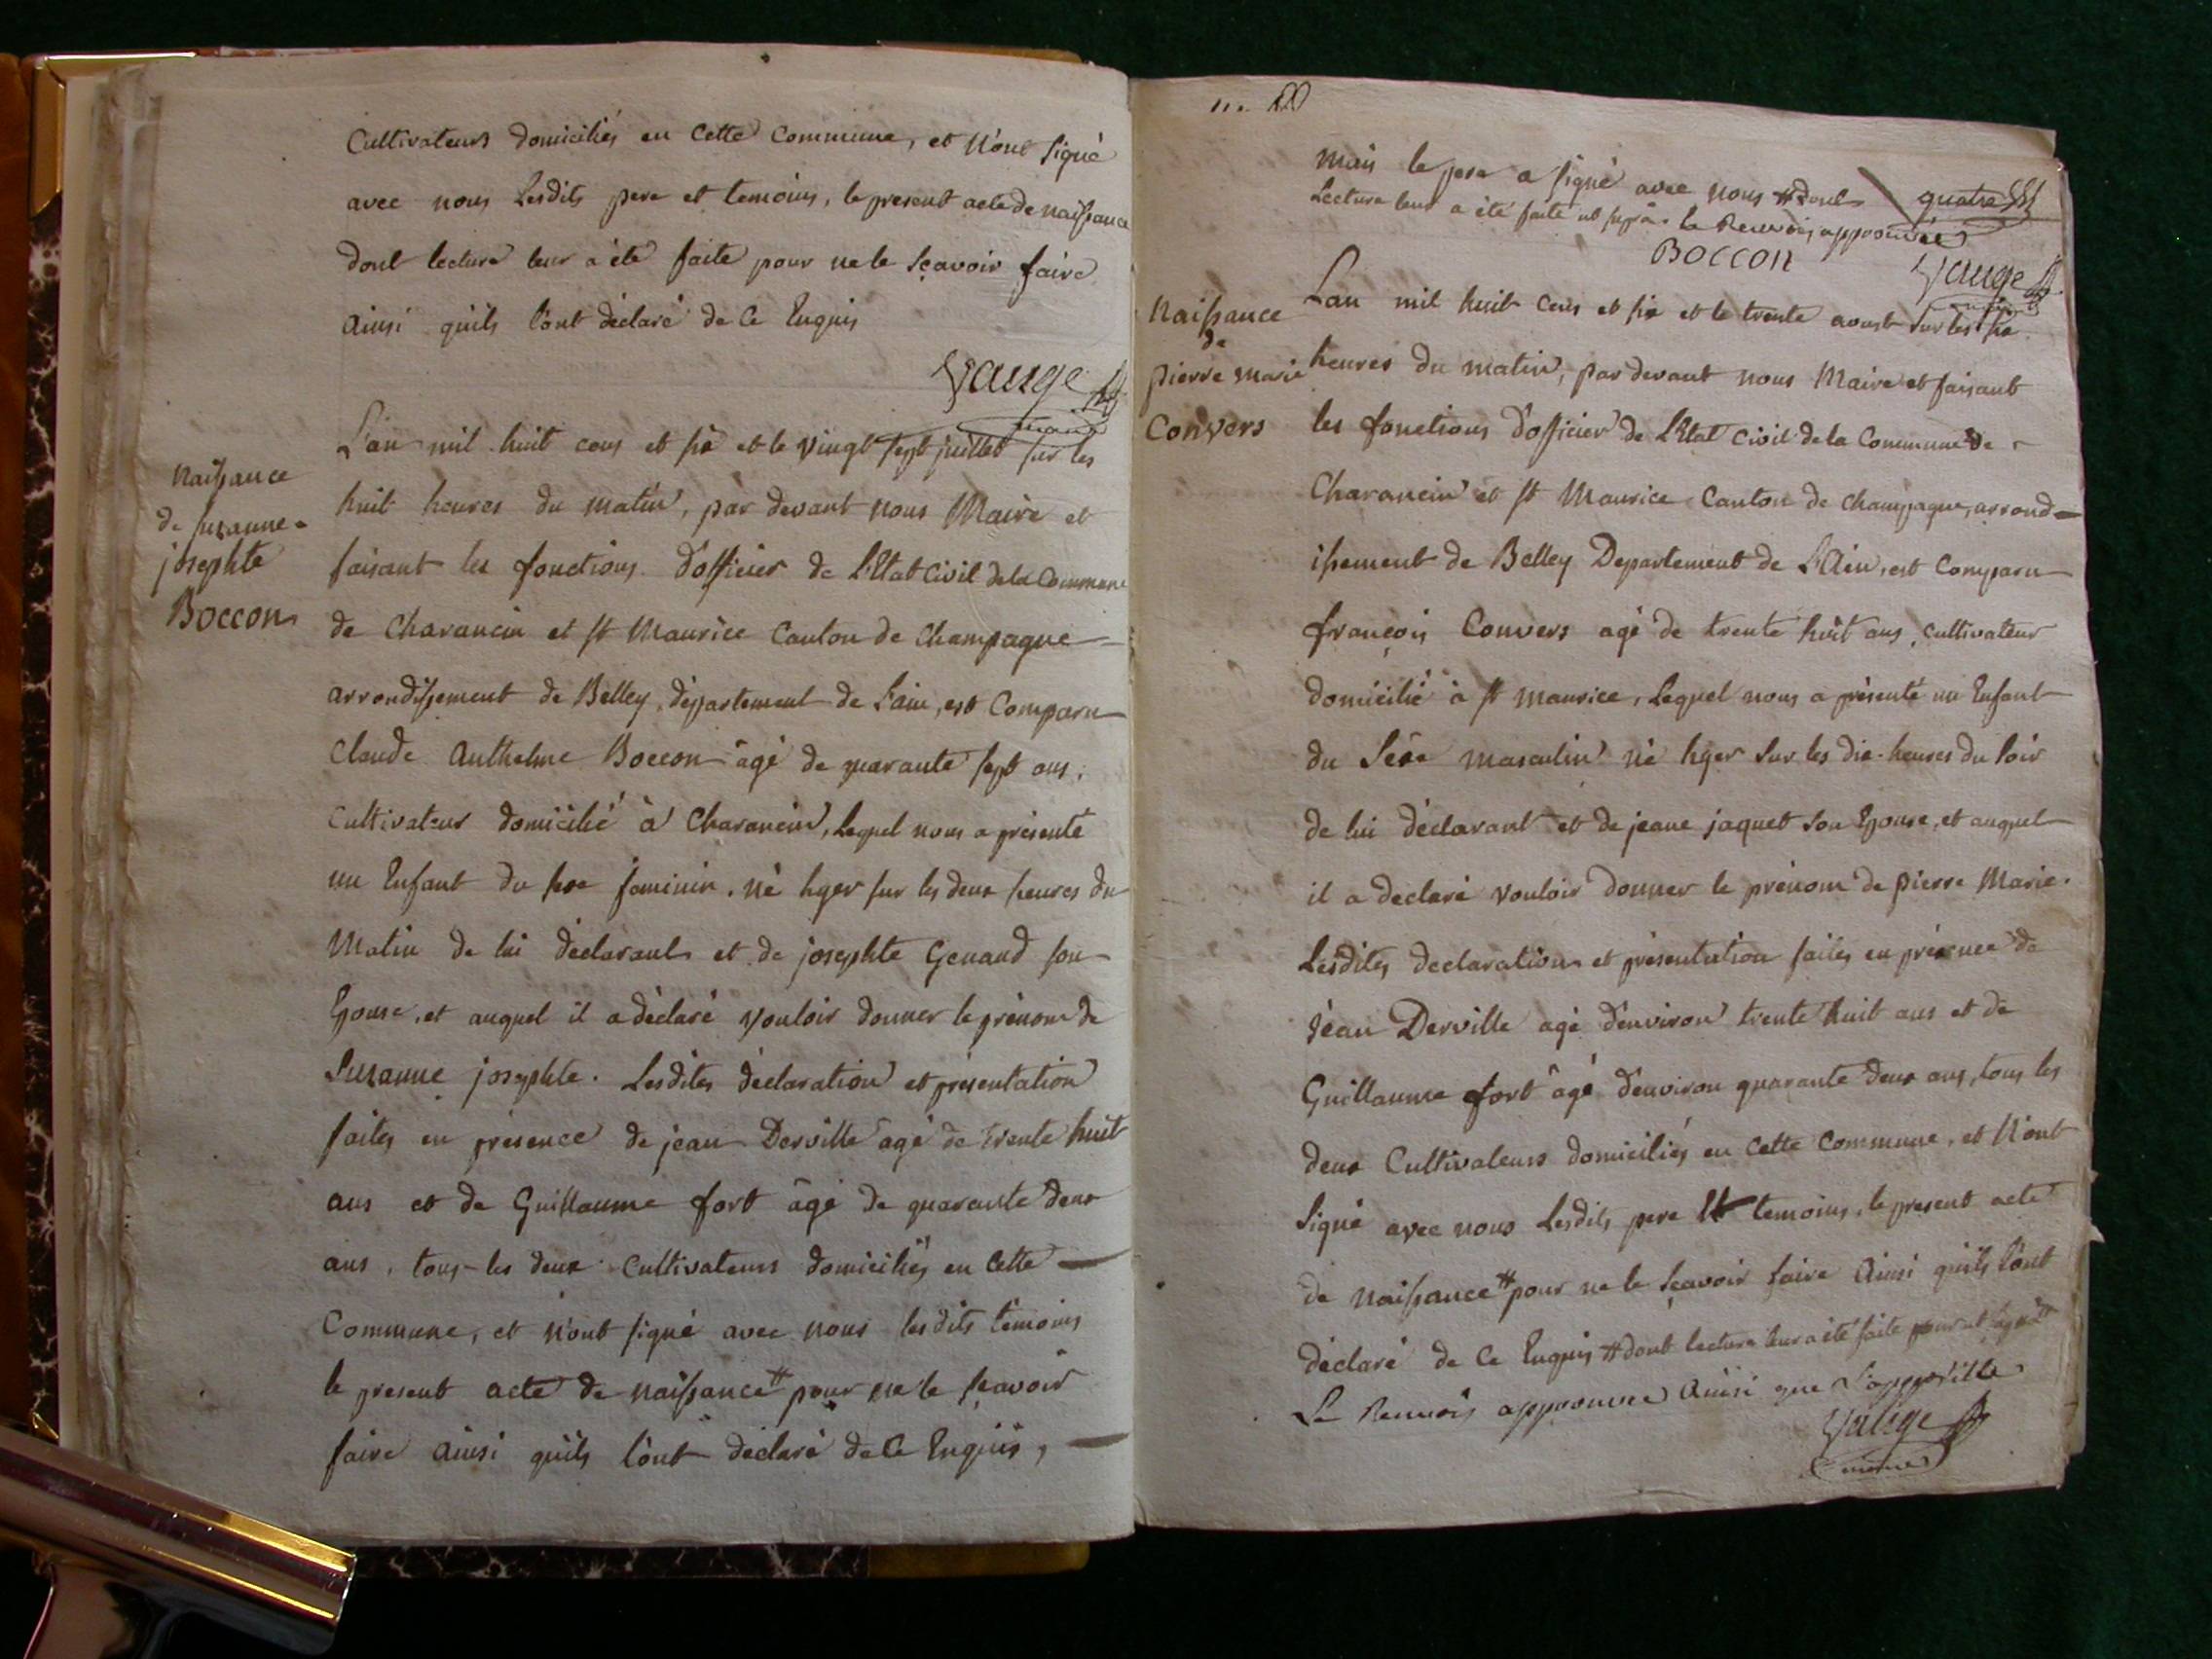 Cultivateurs domiciliés en cette Commune, et N'ont signé
avec nous Lesdits pere et temoins, le present acte de naissance
dont lecture leur a été faite pour ne le sçavoir faire
ainsi quils l'ont déclaré de ce Enquis
Vauge
maire
naissance
de suzanne
josephte
Boccon
L'an mil huit cens et six et le vingt sept juillet sur les
huit heures du matin, par devant nous Maire et
faisant les fonctions d'officier de L'Etat Civil de la Commune
de Charancin et st Maurice Canton de Champagne
arrondissement de Belley, département de L'ain, est Comparu
Claude Anthelme Boccon âgé de quarante sept ans,
Cultivateur domicilié à Charancin, Lequel nous a présenté
un Enfant du sexe feminin. né hyer sur les deux heures du
Matin de lui déclarant et de josephte Genand son
Epouse, et auquel il a déclaré vouloir donner le prénom de
Suzanne josephte. Lesdites déclaration et présentation
faites en présence de jean Derville âgé de trente huit
ans et de Guillaume fort âgé de quarante deux
ans, tous les deux Cultivateurs domiciliés en Cette
Commune, et n'ont signé avec nous lesdits témoins
le present acte de naissance # pour ne le sçavoir
faire ainsi quils l'ont déclaré de Ce Enquis,
mais le pere a signé avec nous # dont
quatre
Lecture leur a été faite ut suprà. le Renvois approuvé
BOCCON
Vauge
maire
Naissance
de
pierre marie
Convers
L'an mil huit Cens et six et le trente aoust sur les six
heures du matin, par devant nous Maire et faisant
les fonctions d'officier de L'Etat Civil de la Commune de
Charancin et st Maurice Canton de Champagne, arrond-
issement de Belley Departement de L'Ain, est Comparu
françois Convers agé de trente huit ans, cultivateur
domicilié à st maurice, Lequel nous a présenté un Enfant
du Sexe masculin né hyer sur les dix heures du soir
de lui déclarant et de jeane jaquet son Epouse, et auquel
il a declaré vouloir donner le prénom de pierre Marie.
Lesdites declaration et présentation faites en présence de
jean Derville agé d'environ trente huit ans et de
Guillaume fort âgé d'environ quarante deux ans, tous les
deux Cultivateurs domiciliés en Cette Commune, et N'ont
signé avec nous Lesdits pere et temoins, le present acte
de naissance # pour ne le sçavoir faire ainsi quils l'ont
déclaré de Ce Enquis # dont lecture leur a été faite
Le Renvois approuvé ainsi que L'apostille
Vauge
maire